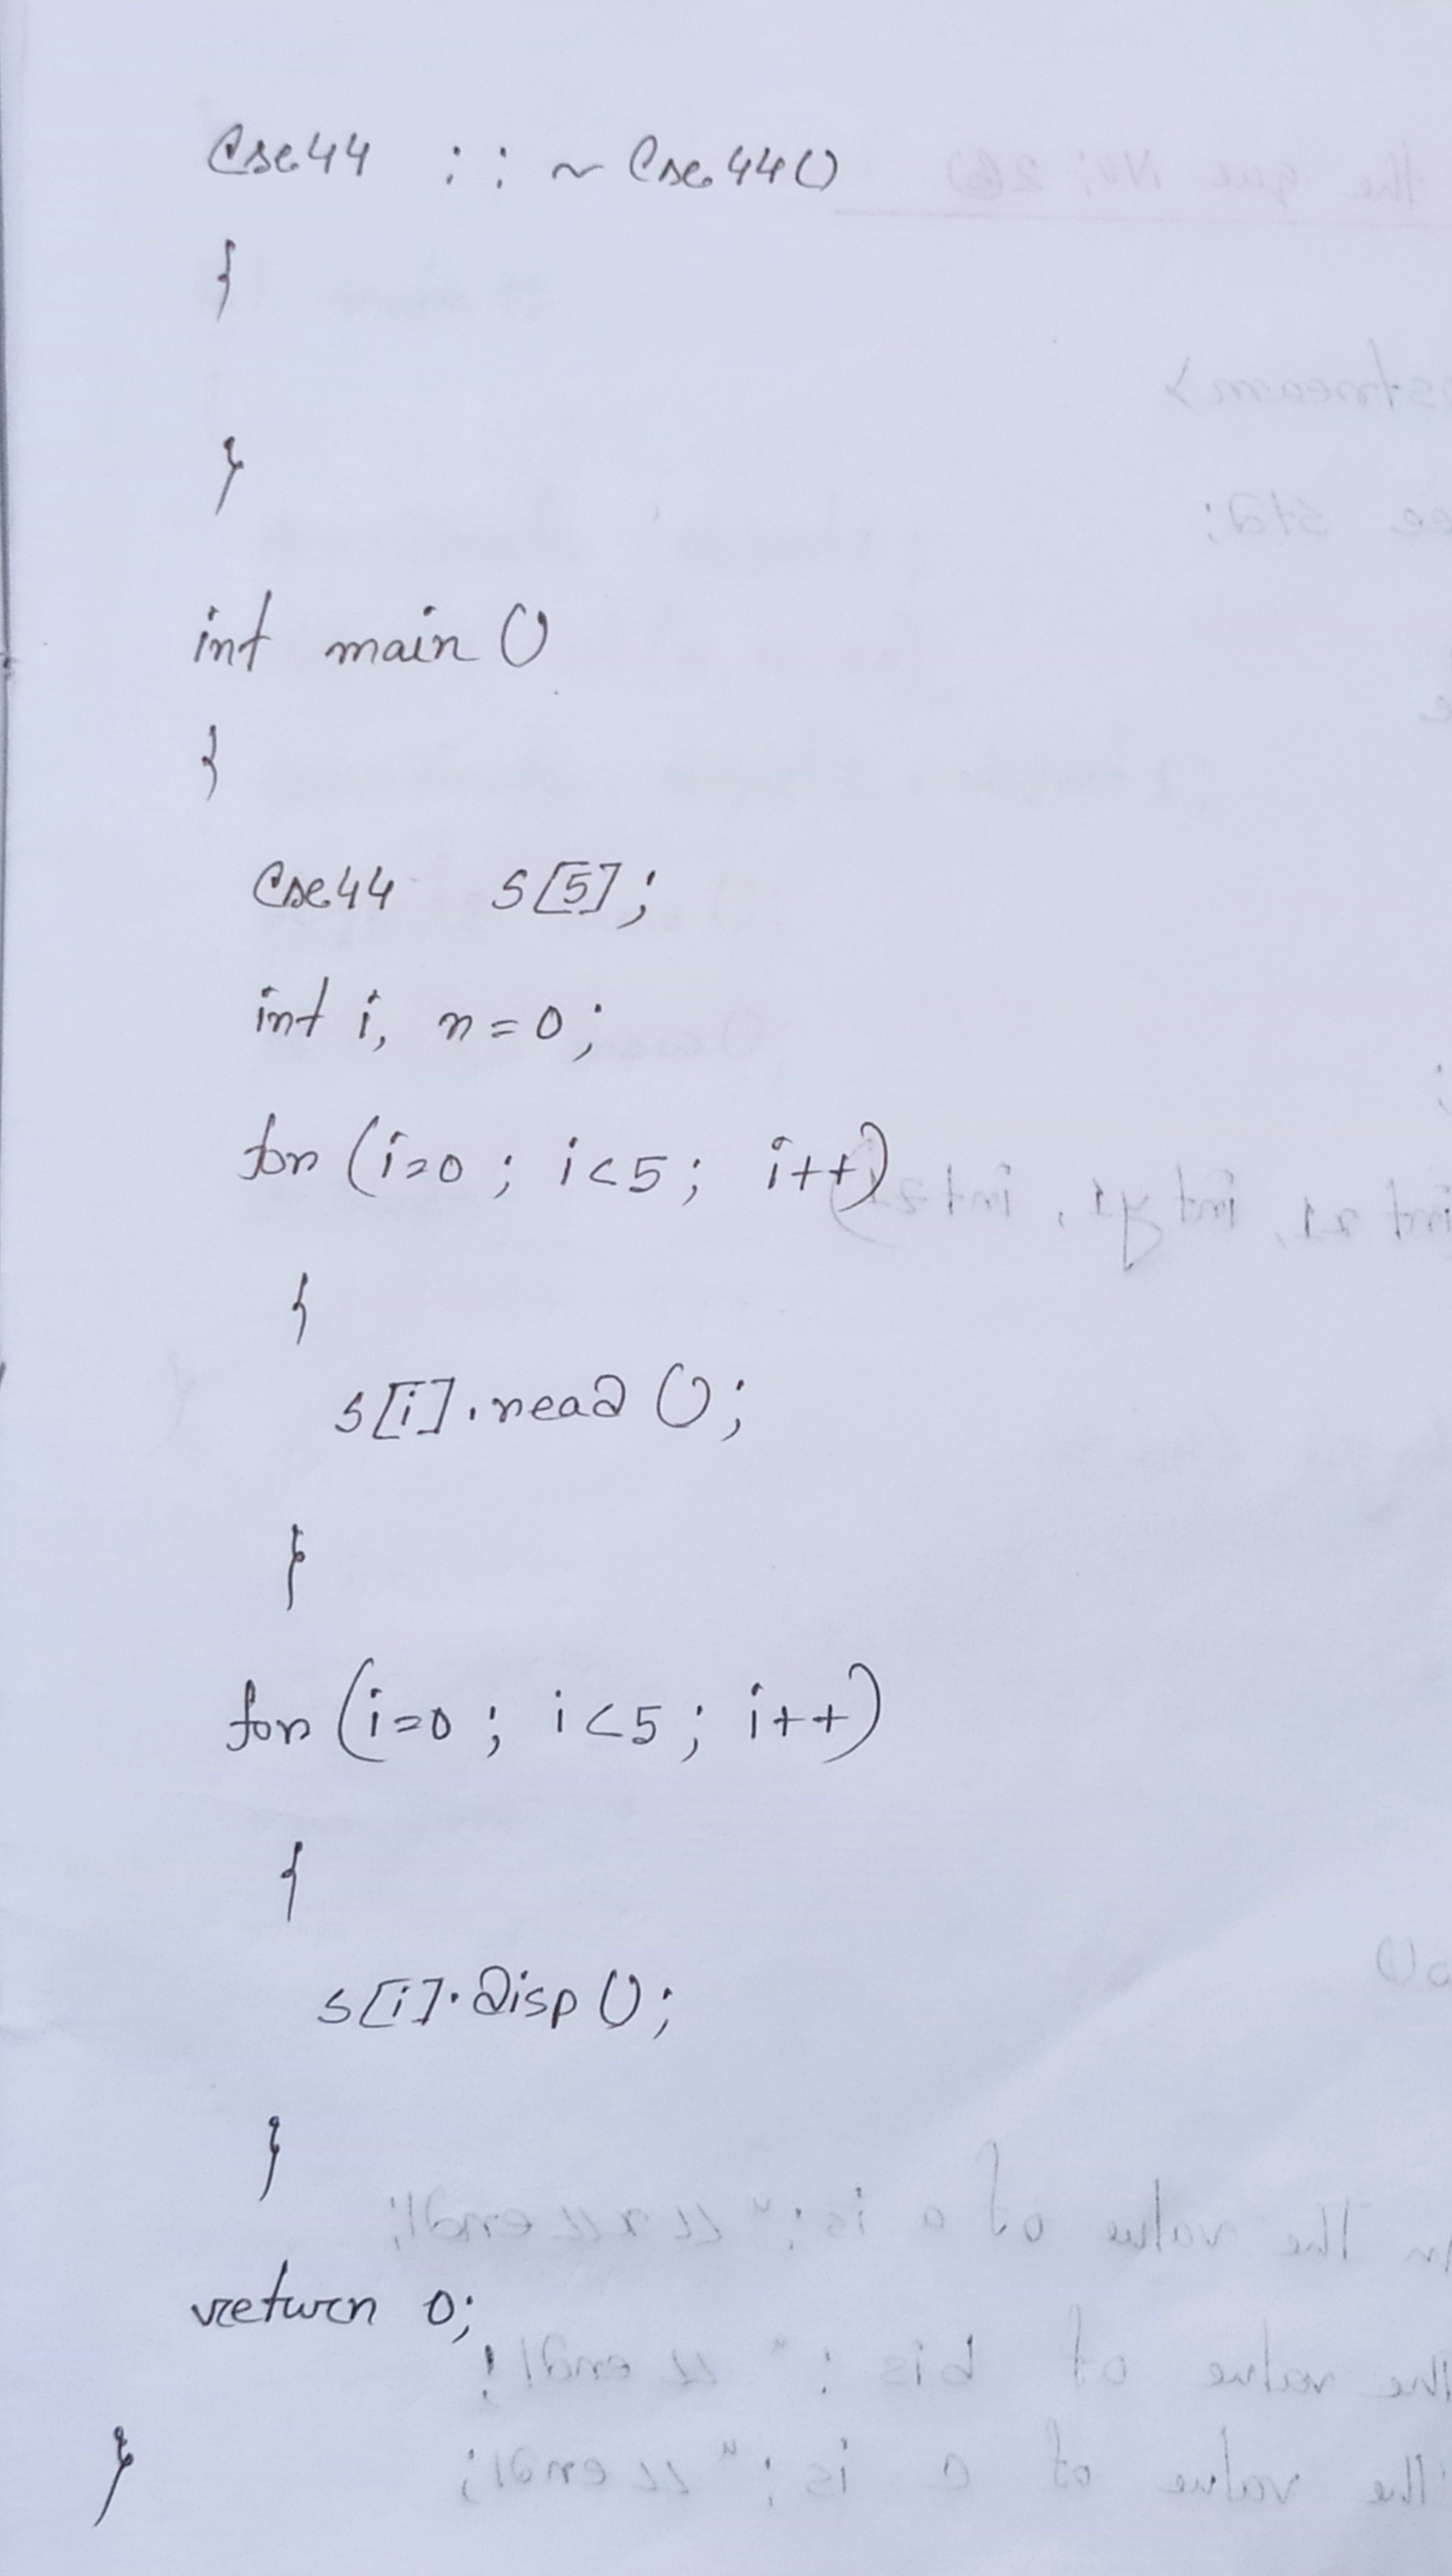 Cse44 :: ~ Cse44()
{
}
int main ()
{
Cse44 s[5];
int i, n=0;
for (i=0; i<5; i++)
{
s[i].read ();
}
for (i=0; i<5; i++)
{
s[i].disp ();
}
return 0;
}